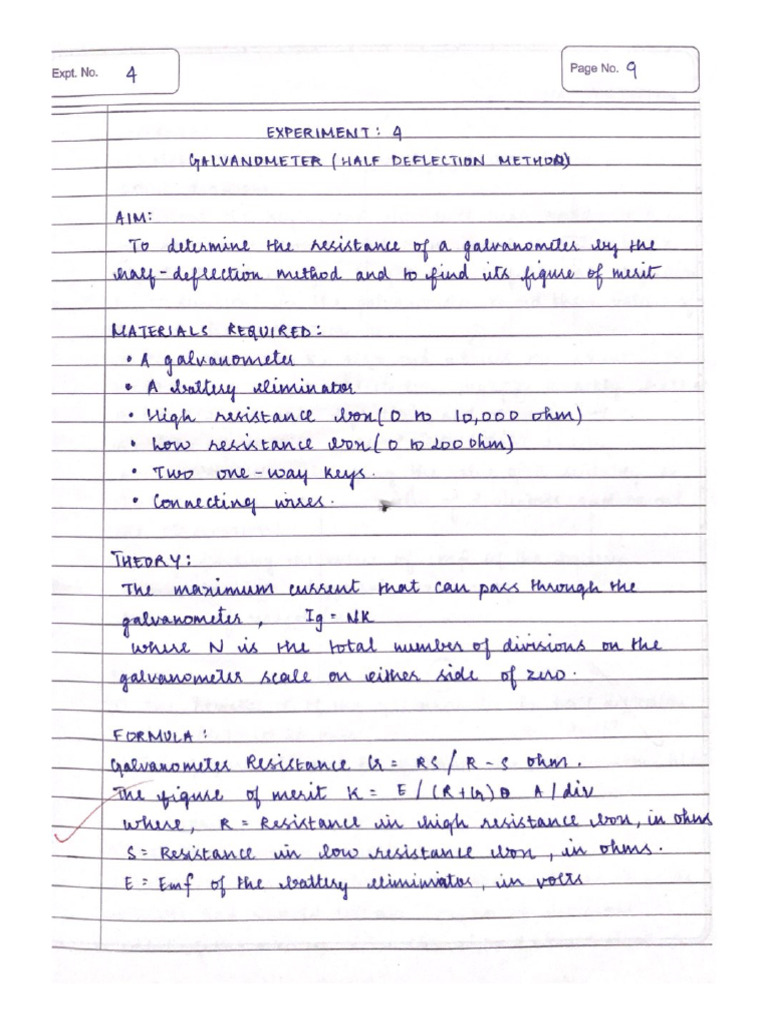 Expt. No. 4
Page No. 9
EXPERIMENT: 4
GALVANOMETER (HALF DEFLECTION METHOD)
AIM:
To determine the resistance of a galvanometer by the
half-deflection method and to find its figure of merit
MATERIALS REQUIRED:
• A galvanometer
• A battery eliminator
• High resistance box (0 to 10,000 ohm)
• Low resistance box (0 to 200 ohm)
• Two one-way keys.
• Connecting wires.
THEORY:
The maximum current that can pass through the
galvanometer, Ig = NK
where N is the total number of divisions on the
galvanometer scale on either side of zero.
FORMULA:
Galvanometer Resistance G = RS / R - S ohm.
The figure of merit K = E / (R+G) θ A / div
where, R = Resistance in high resistance box, in ohms
S = Resistance in low resistance box, in ohms.
E = Emf of the battery eliminator, in volts